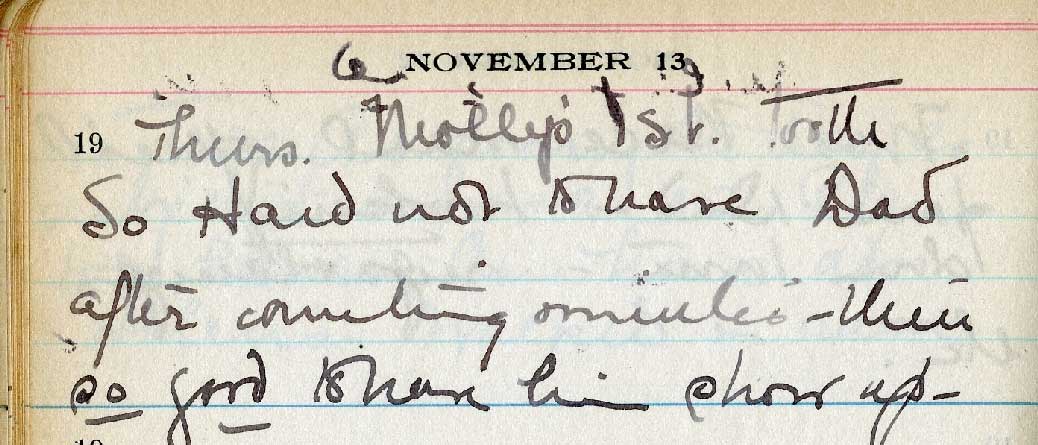 NOVEMBER 13
19 Thurs. Molly's 1st. Tooth
So Hard not to have Dad
after counting minutes - then
so good to have him show up -
19